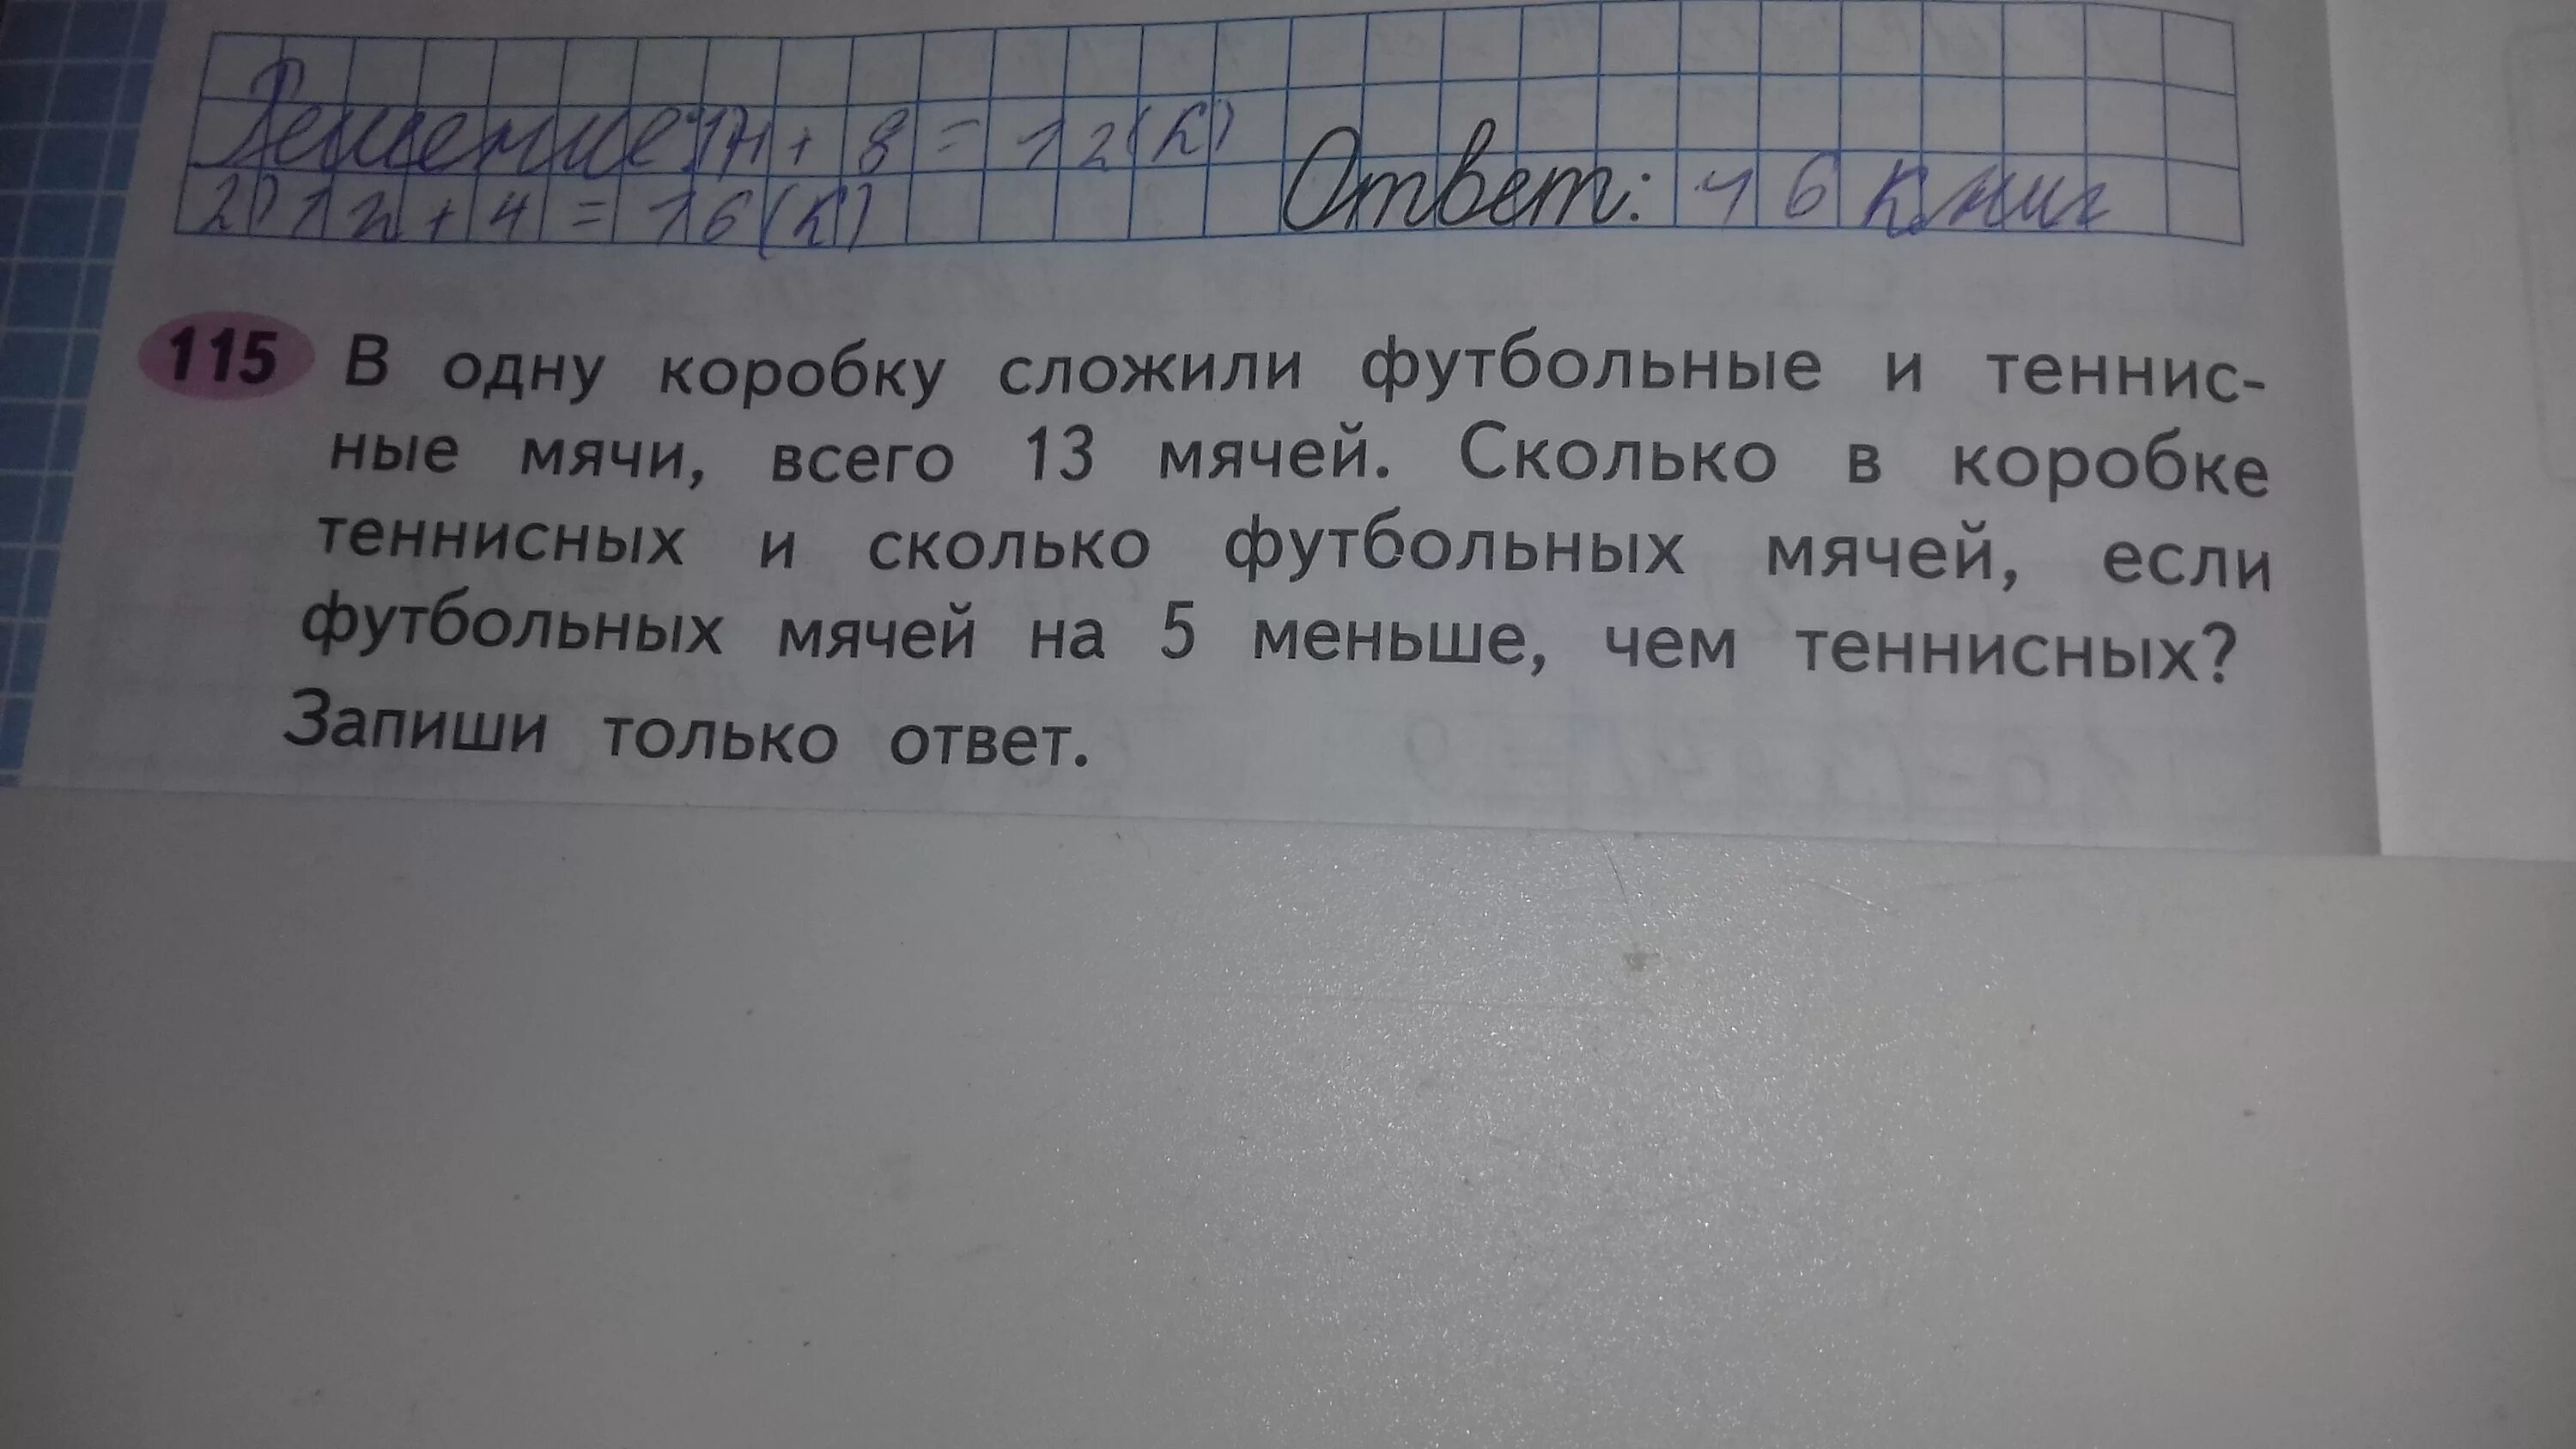 Решение: 1) 4 + 8 = 12 (к)
2) 12 + 4 = 16 (к)
Ответ: 16 книг
115 В одну коробку сложили футбольные и теннис-
ные мячи, всего 13 мячей. Сколько в коробке
теннисных и сколько футбольных мячей, если
футбольных мячей на 5 меньше, чем теннисных?
Запиши только ответ.